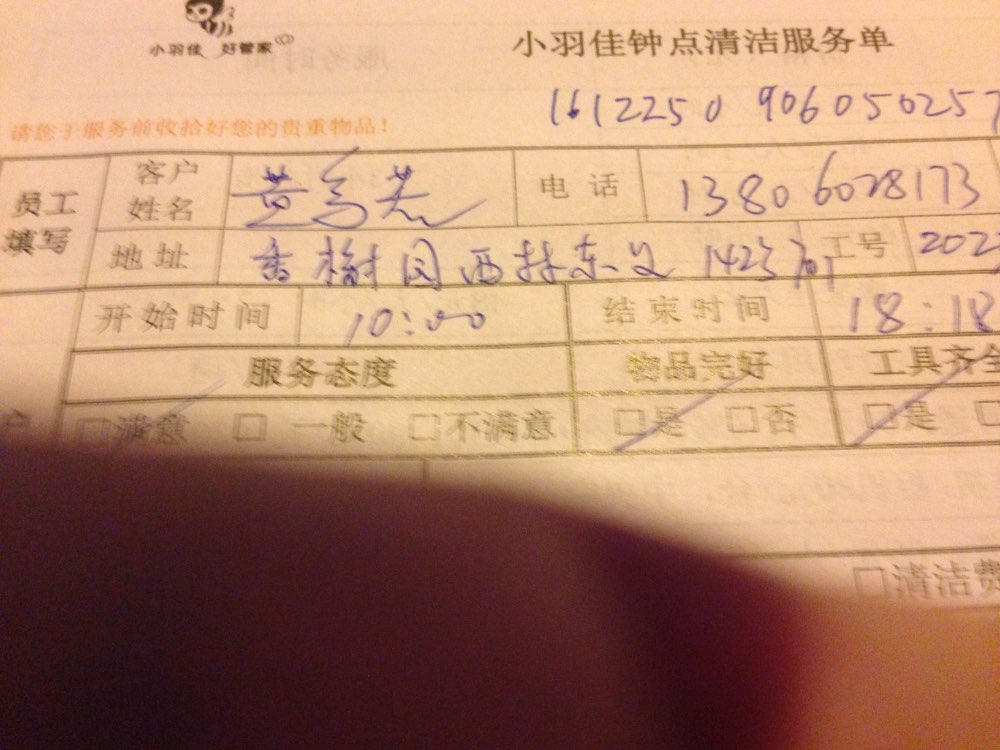 小羽佳 好管家
小羽佳钟点清洁服务单
1612250 906050257
请您于服务前收拾好您的贵重物品!
员工填写 客户姓名 黄 电话 13806028173
地址 香榭园西林东 1423 工号 202
开始时间 10:00 结束时间 18:18
服务态度 物品完好 工具齐全
□满意 □一般 □不满意 □是 □否 □是
户
□清洁费